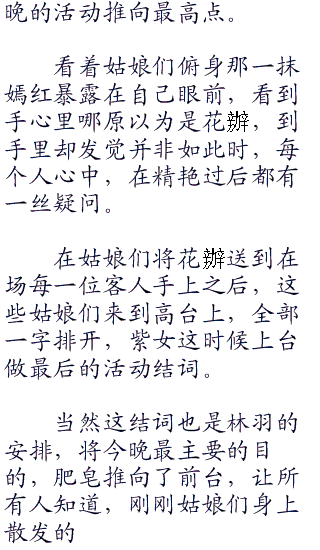 晚的活动推向最高点。
看着姑娘们俯身那一抹
嫣红暴露在自己眼前，看到
手心里哪原以为是花辦，到
手里却发觉并非如此时，每
个人心中，在精艳过后都有
一丝疑问。
在姑娘们将花辦送到在
场每一位客人手上之后，这
些姑娘们来到高台上，全部
一字排开，紫女这时候上台
做最后的活动结词。
当然这结词也是林羽的
安排，将今晚最主要的目
的，肥皂推向了前台，让所
有人知道，刚刚姑娘们身上
散发的